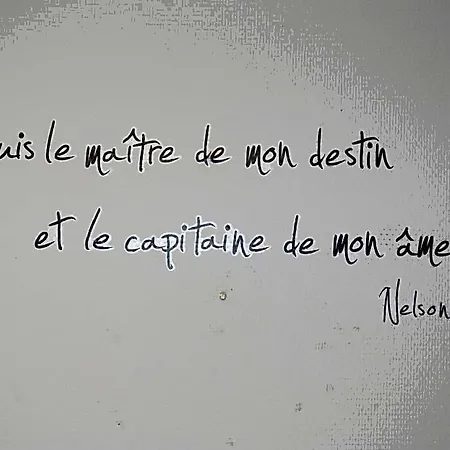 uis le maître de mon destin
et le capitaine de mon âme
Nelson